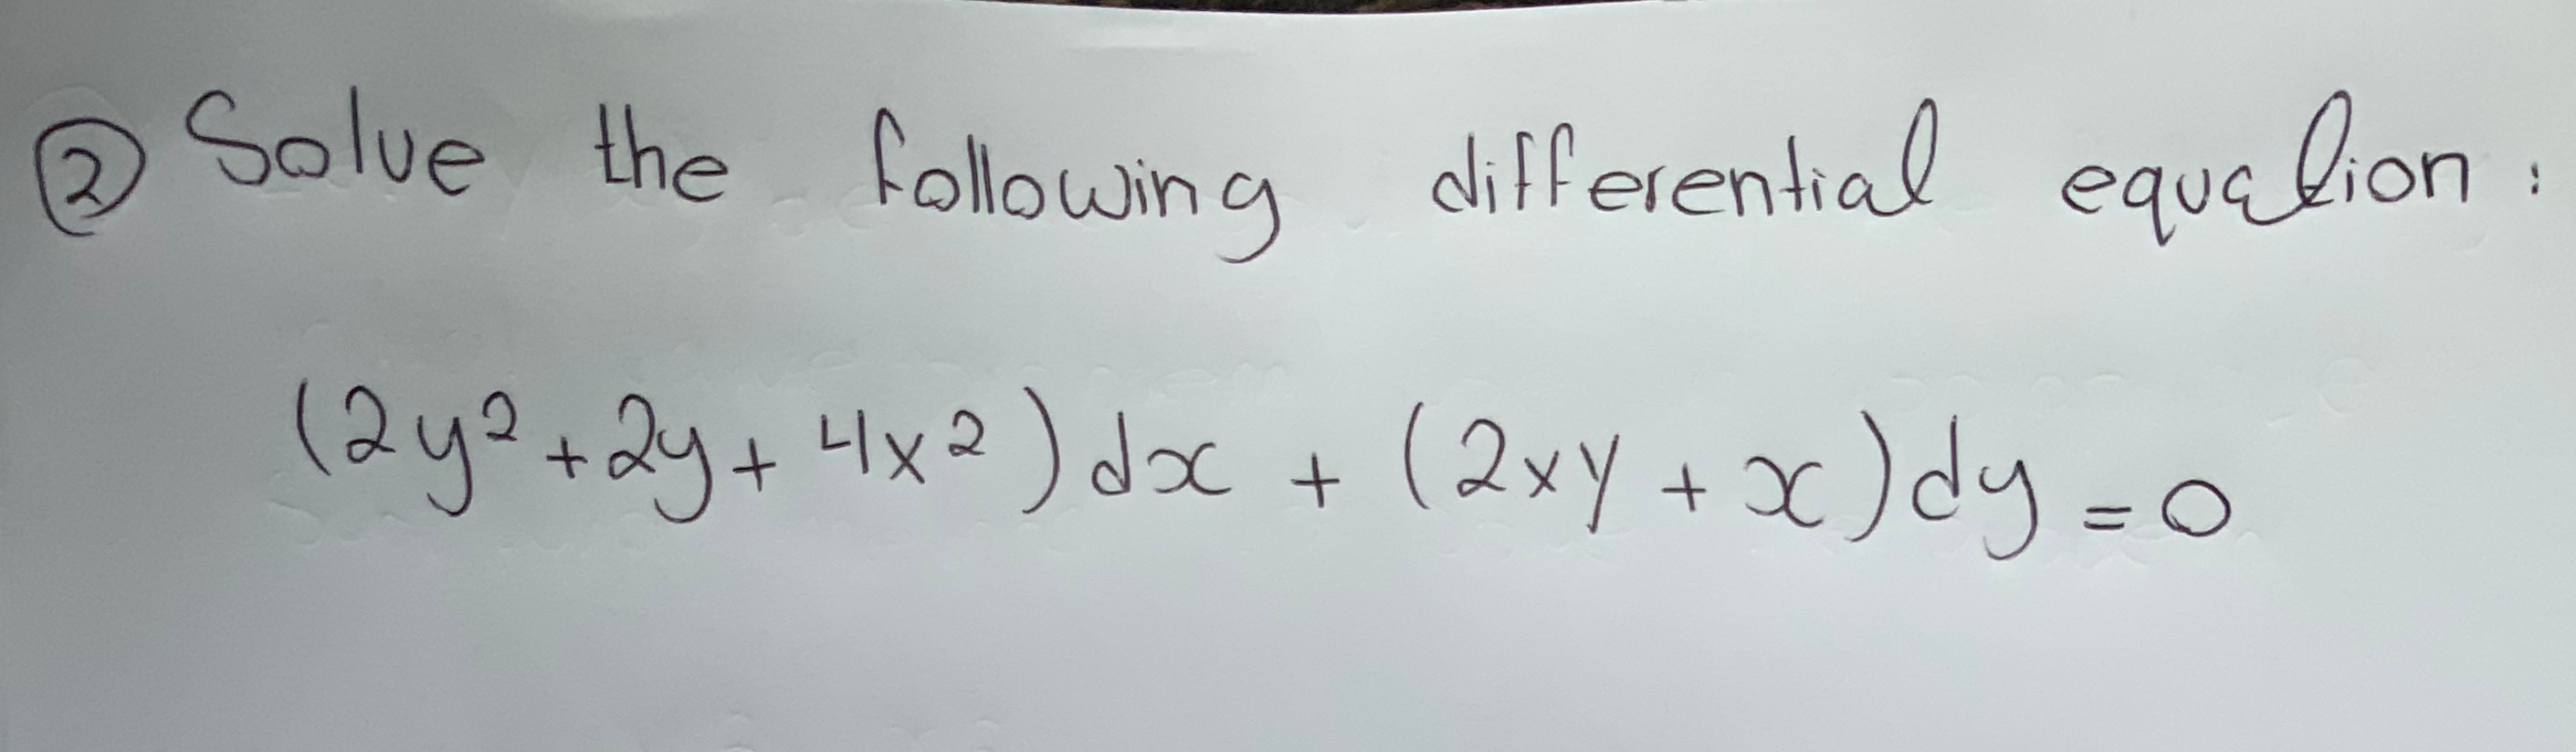 ② Solve the following differential equation :
(2y² + 2y + 4x²) dx + (2xy + x) dy = 0